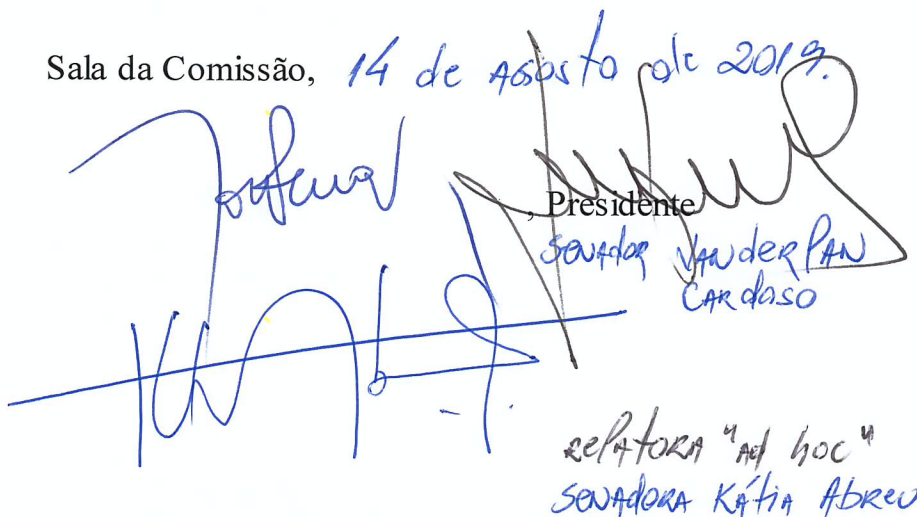 Sala da Comissão, 14 de Agosto de 2019.
, Presidente
SENADOR VANDERLAN
CARDOSO
RELATORA "Ad hoc"
SENADORA KÁTIA ABREU